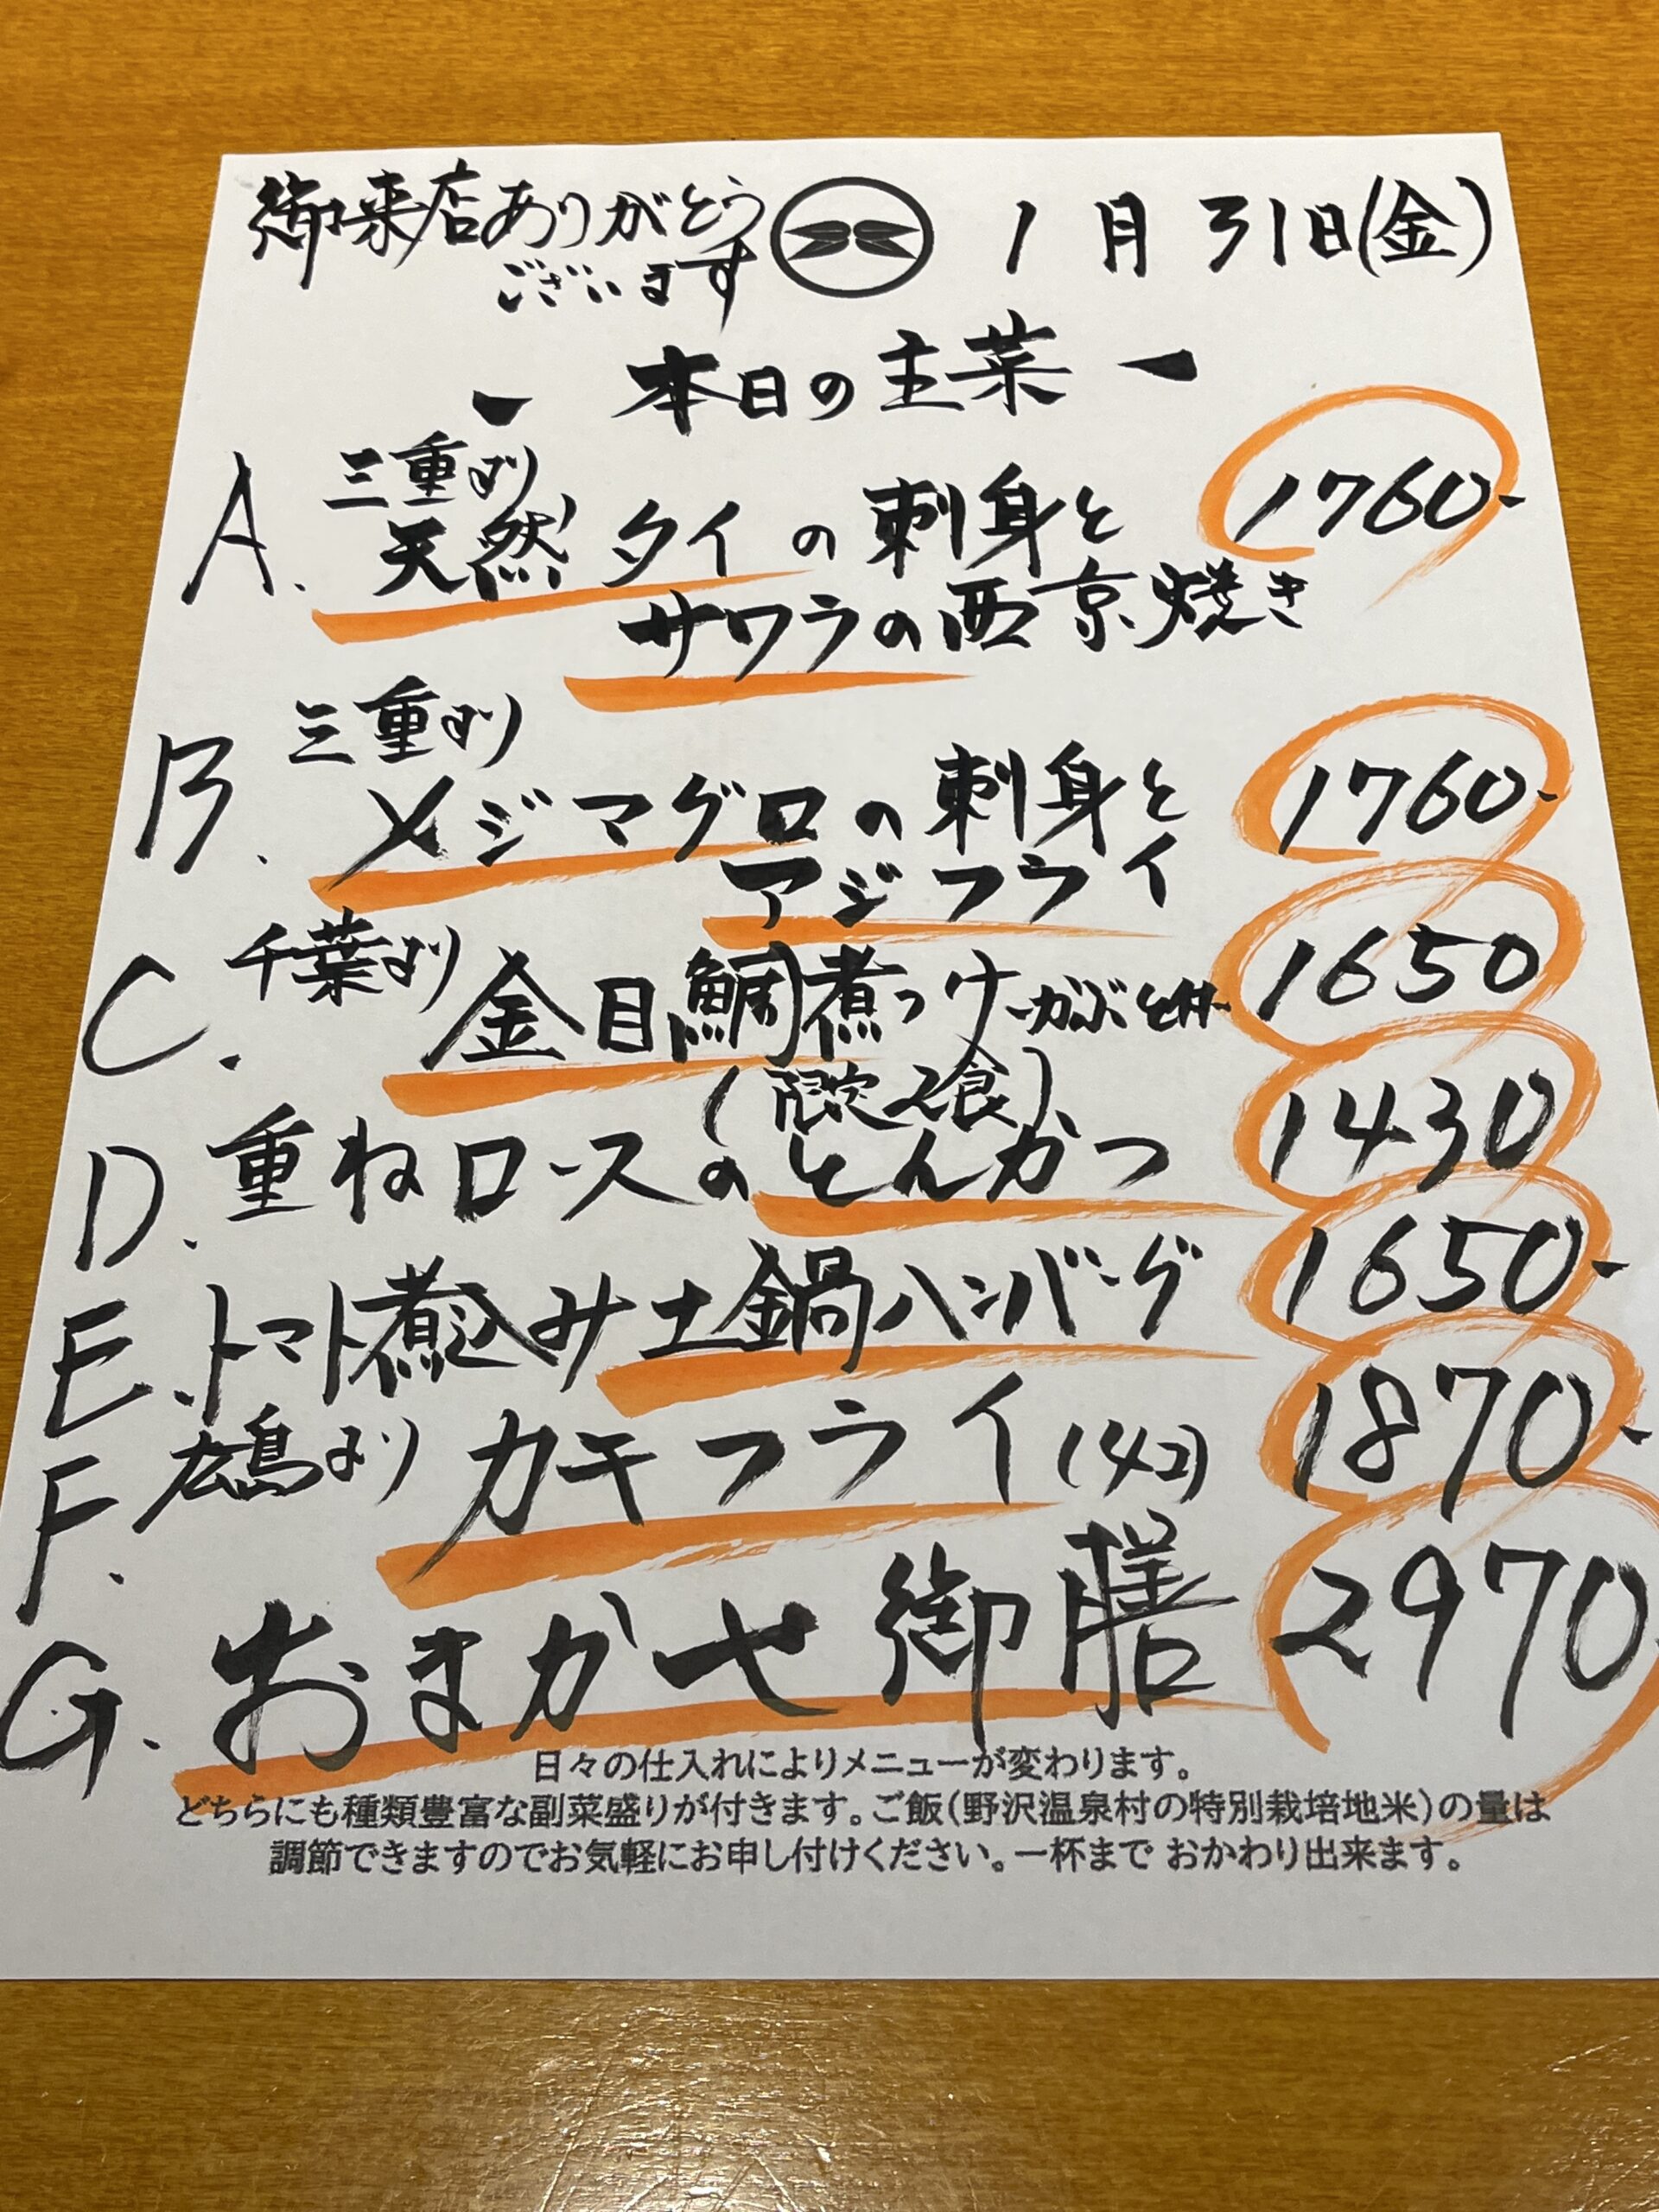 御来店ありがとう
ございます
1月31日(金)
ー 本日の主菜 ー
A. 三重より
天然 タイの刺身と 1760-
サワラの西京焼き
B. 三重より
メジマグロの刺身と 1760-
アジフライ
C. 千葉より
金目鯛煮つけ 1650
(限定2食)
D. 重ねロースのとんかつ 1430
E. トマト煮込み土鍋ハンバーグ 1650-
F. 広島より カキフライ(4コ) 1870-
G. おまかせ御膳 2970
日々の仕入れによりメニューが変わります。
どちらにも種類豊富な副菜盛りが付きます。ご飯(野沢温泉村の特別栽培地米)の量は
調節できますのでお気軽にお申し付けください。一杯まで おかわり出来ます。